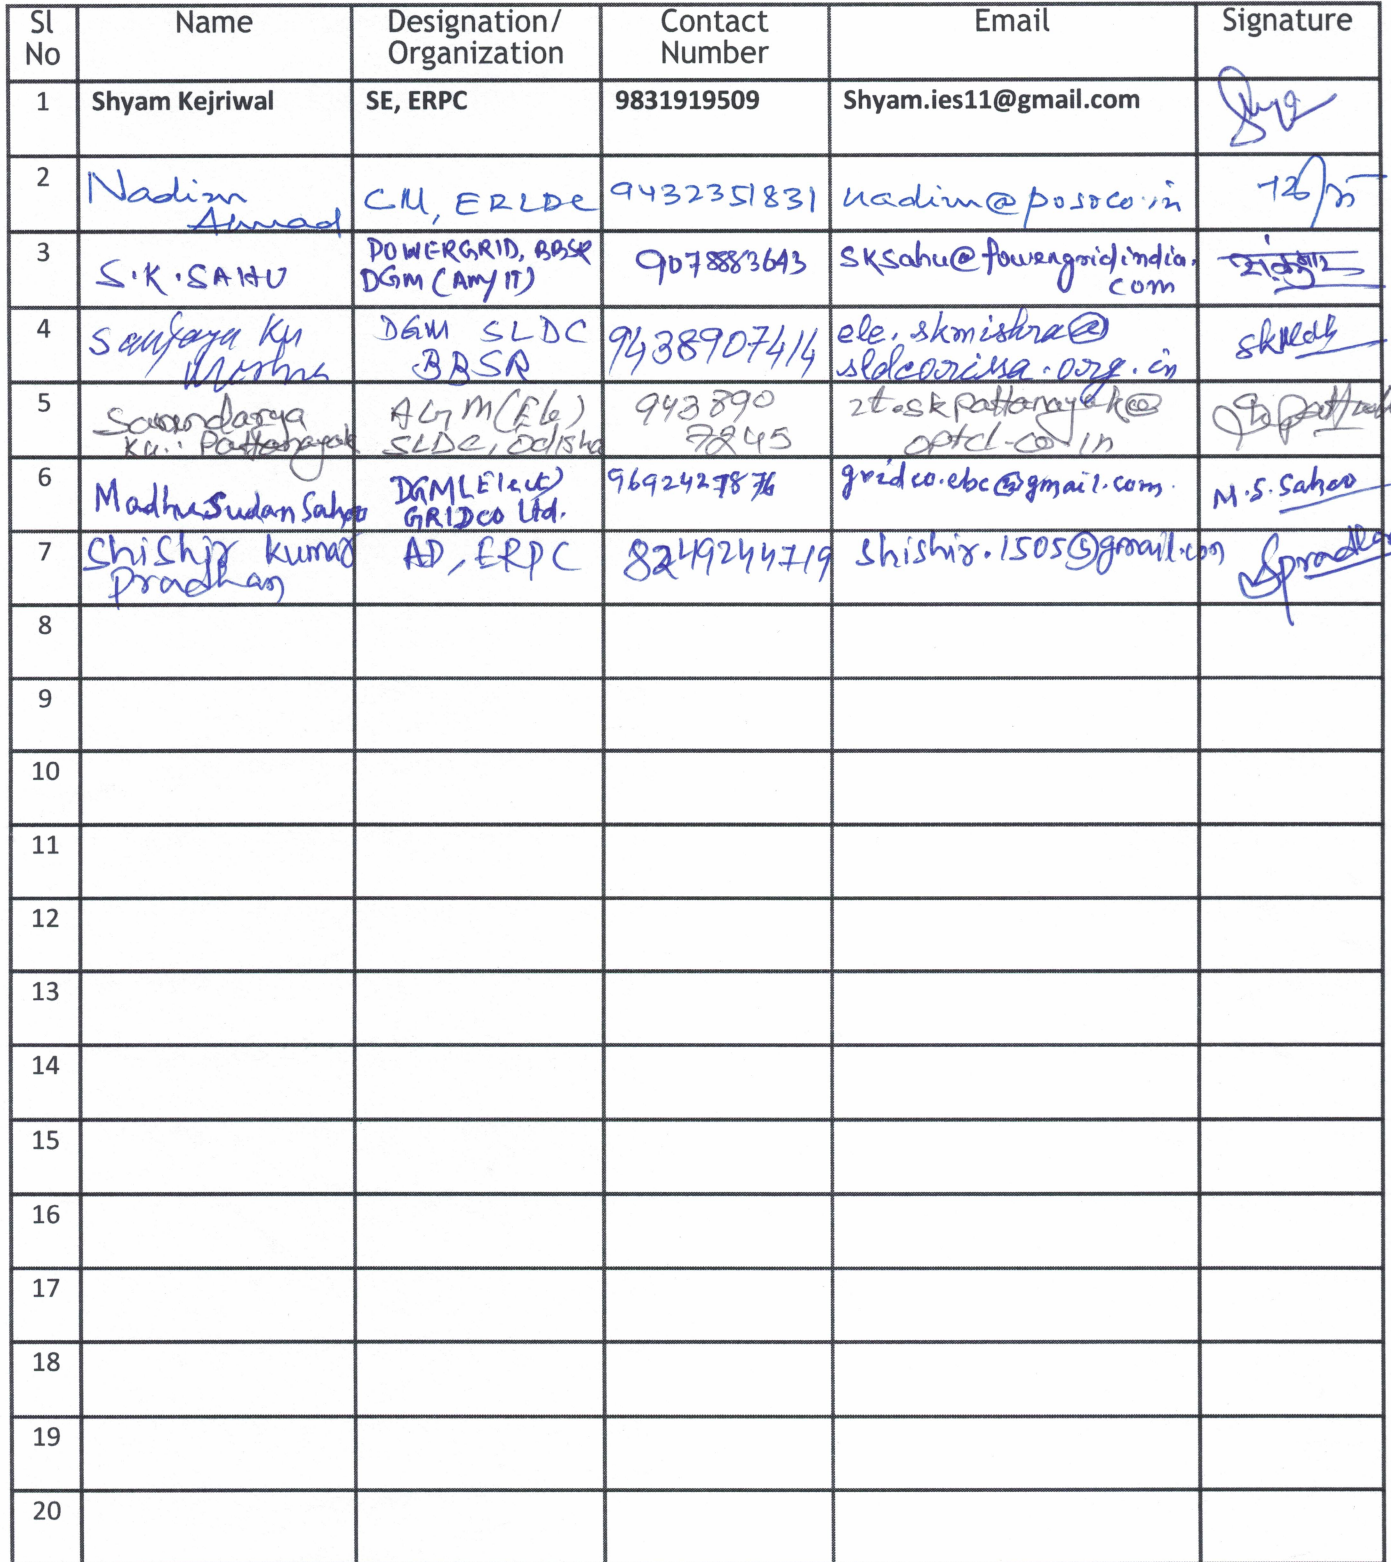 Sl No Name Designation/ Organization Contact Number Email Signature
1 Shyam Kejriwal SE, ERPC 9831919509 Shyam.ies11@gmail.com
2 Nadim Ahmad CM, ERLDC 9432351831 nadim@posoco.in
3 S.K.SAHU POWERGRID, BBSR DGM (AM/IT) 9078883643 sksahu@powergridindia.com
4 Sanjaya Ku Mishra DGM SLDC BBSR 9438907414 ele.skmishra@sldcorissa.org.in
5 Soundarya Ku. Pattanayak AGM(Ele) SLDC, Odisha 943890 7245 skpattanayak@optcl.co.in
6 Madhusudan Sahoo DGM(Elect) GRIDCO Ltd. 9692427876 gridco.ebc@gmail.com. M.S.Sahoo
7 Shishir Kumar Pradhan AD, ERPC 8249244719 shishir.1505@gmail.com Spradhan
8
9
10
11
12
13
14
15
16
17
18
19
20